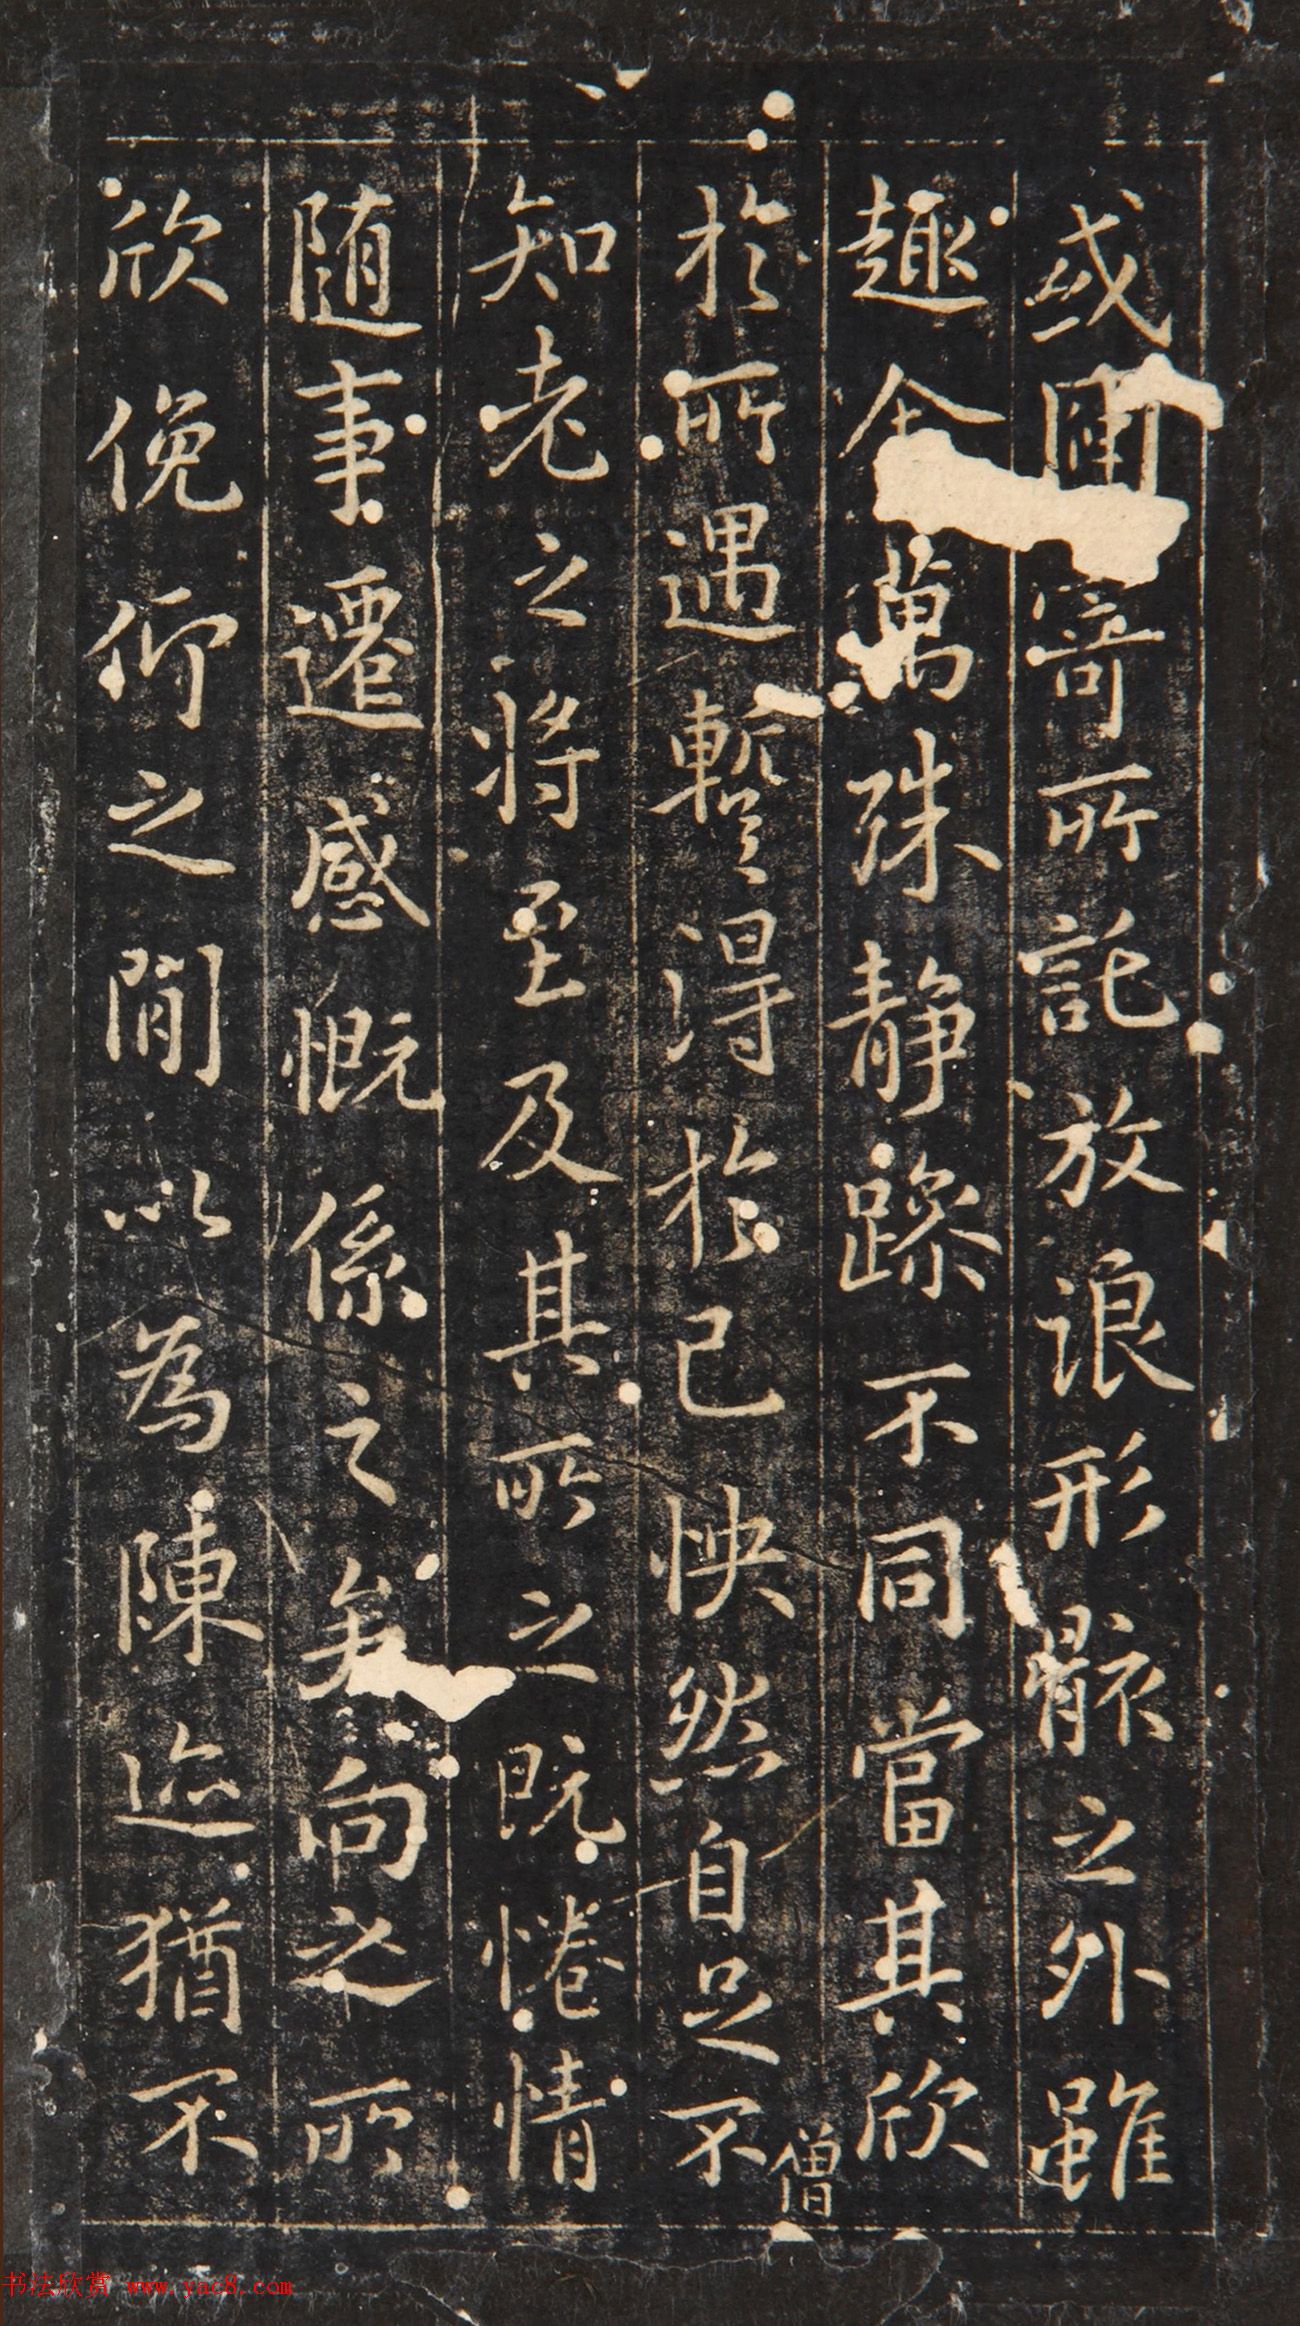 或因寄所託放浪形骸之外雖
趣舍萬殊静躁不同當其欣
於所遇暫得於己怏然自足不
僧
知老之将至及其所之既惓情
随事遷感慨係之矣向之所
欣俛仰之閒以為陳迹猶不
书法欣赏 www.yac8.com